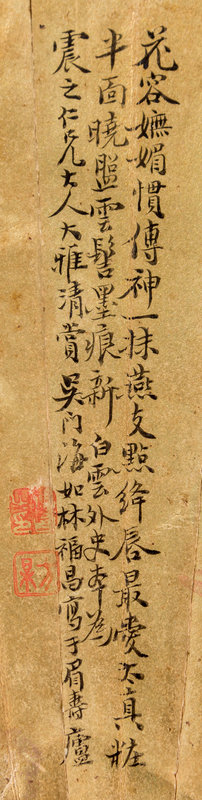 花容嫵媚慣傳神一抹燕支點絳唇最愛太真粧
半面曉盥雲髻墨痕新 白雲外史本為
震之仁兄大人大雅清賞吴門海如林福昌寫于眉壽廬